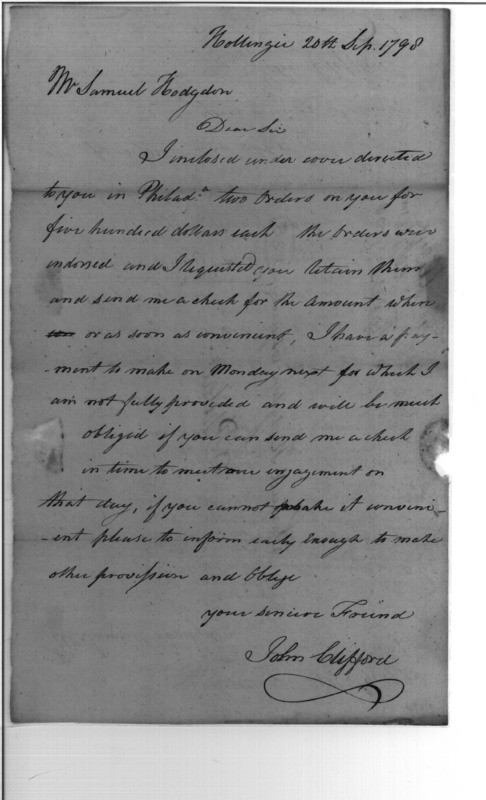 Nottingie 20th Sep. 1798
Mr Samuel Hodgdon
Dear Sir
I inclosed under cover directed
to you in Philada two orders on you for
five hundred dollars each the orders were
endorsed and I requested you retain them
and send me a check for the amount when
or as soon as convenient, I have a pay-
-ment to make on Monday next for which I
am not fully provided and will be much
obligid if you can send me a check
in time to meet one engagement on
that day, if you cannot make it conveni-
-ent please to inform early enough to make
other provission and Oblige
your sincere Friend
John Clifford